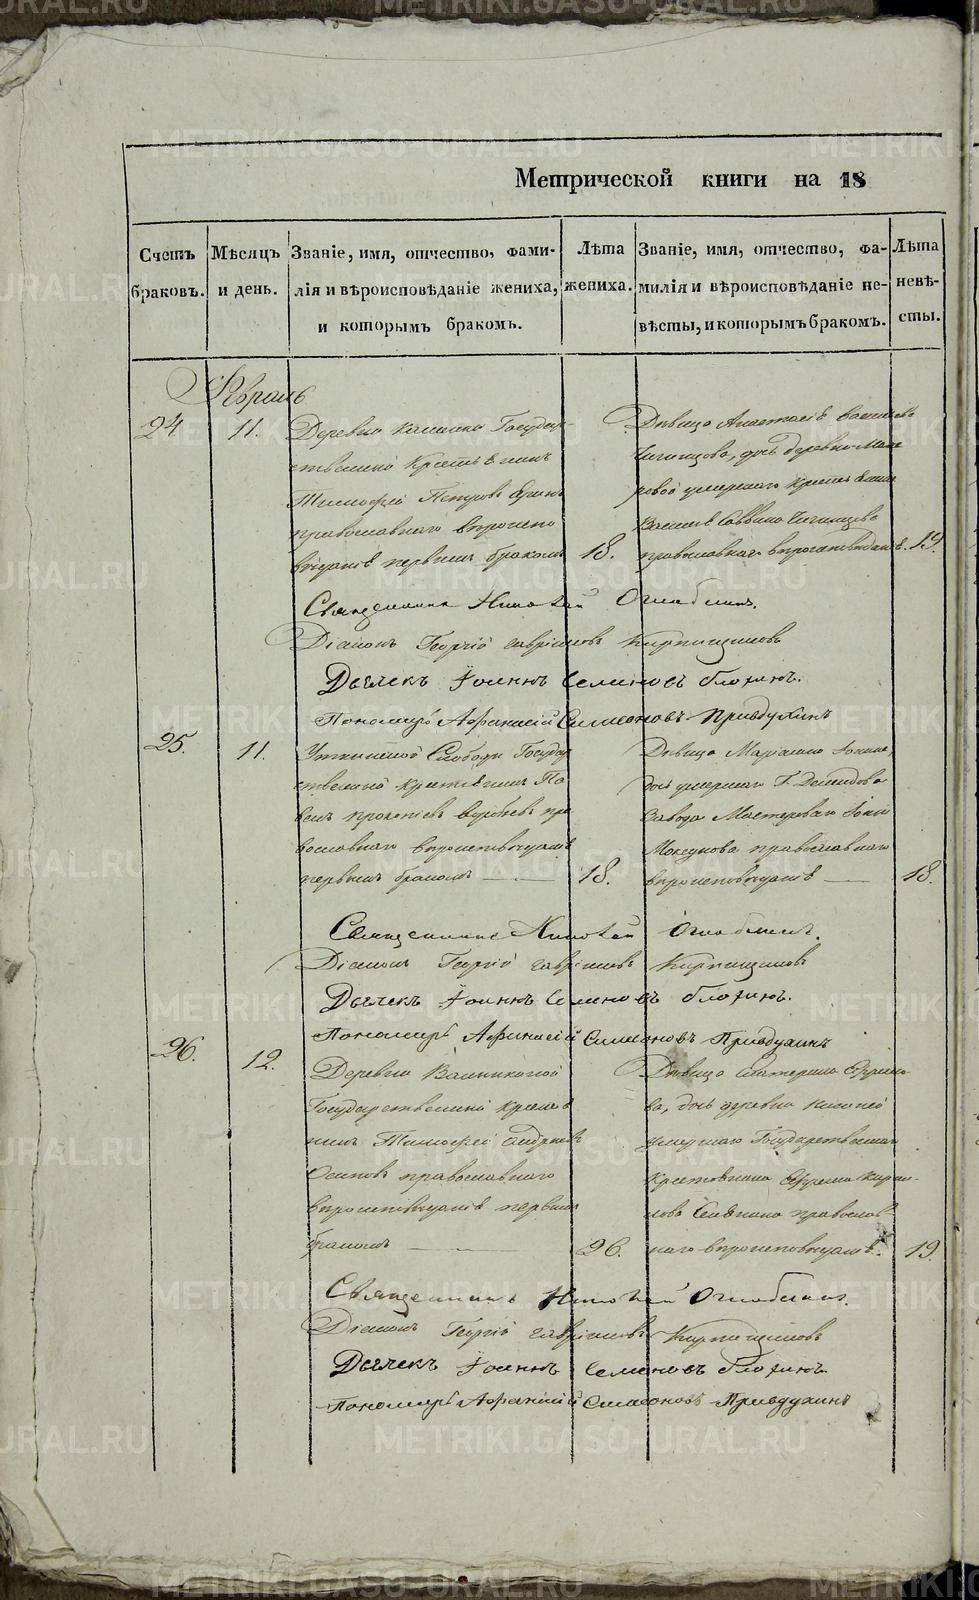 Метрической книги на 18
Счетъ браковъ.
Мѣсяцъ и день.
Званіе, имя, отчество, фами-
лія и вѣроисповѣданіе жениха,
и которымъ бракомъ.
Лѣта
жениха.
Званіе, имя, отчество, фа-
милія и вѣроисповѣданіе не-
вѣсты, и которымъ бракомъ.
Лѣта
невѣ-
сты.
Февраль
24
11.
Деревни Государ-
ственной Крестьянинъ
Тимофей Петровъ
православнаго вѣроиспо
вѣданія первымъ бракомъ
18.
Дѣвица Анастасія Васильева
дочь деревни
умершаго крестьянина
Василія Саввина
православнаго вѣроисповѣданія.
19.
Священникъ Николай Оглоблинъ.
Діаконъ Георгій Гавріиловъ Кирпищиковъ
Дьячекъ Іоаннъ Семеновъ Флоринъ.
Пономарь Афанасій Симеоновъ
25.
11.
Уткинской Слободы Государ
ственной крестьянинъ Па
велъ пра
вославнаго вѣроисповѣданія
первымъ бракомъ
18.
Дѣвица
дочь умершаго Демидова
Завода Мастероваго
православнаго
вѣроисповѣданія
18.
Священникъ Николай Оглоблинъ.
Діаконъ Георгій Гавріиловъ Кирпищиковъ
Дьячекъ Іоаннъ Семеновъ Флоринъ.
Пономарь Афанасій Симеоновъ
26.
12.
Деревни
Государственной крестья
нинъ Тимофей Андреевъ
Осиповъ православнаго
вѣроисповѣданія первымъ
бракомъ
26.
Дѣвица Екатерина Ефремо
ва, дочь деревни
умершаго Государственнаго
крестьянина Ефрема Кирил-
лова православ
наго вѣроисповѣданія.
19.
Священникъ Николай Оглоблинъ.
Діаконъ Георгій Гавріиловъ Кирпищиковъ
Дьячекъ Іоаннъ Семеновъ Флоринъ.
Пономарь Афанасій Симеоновъ
METRIKI.GASO-URAL.RU